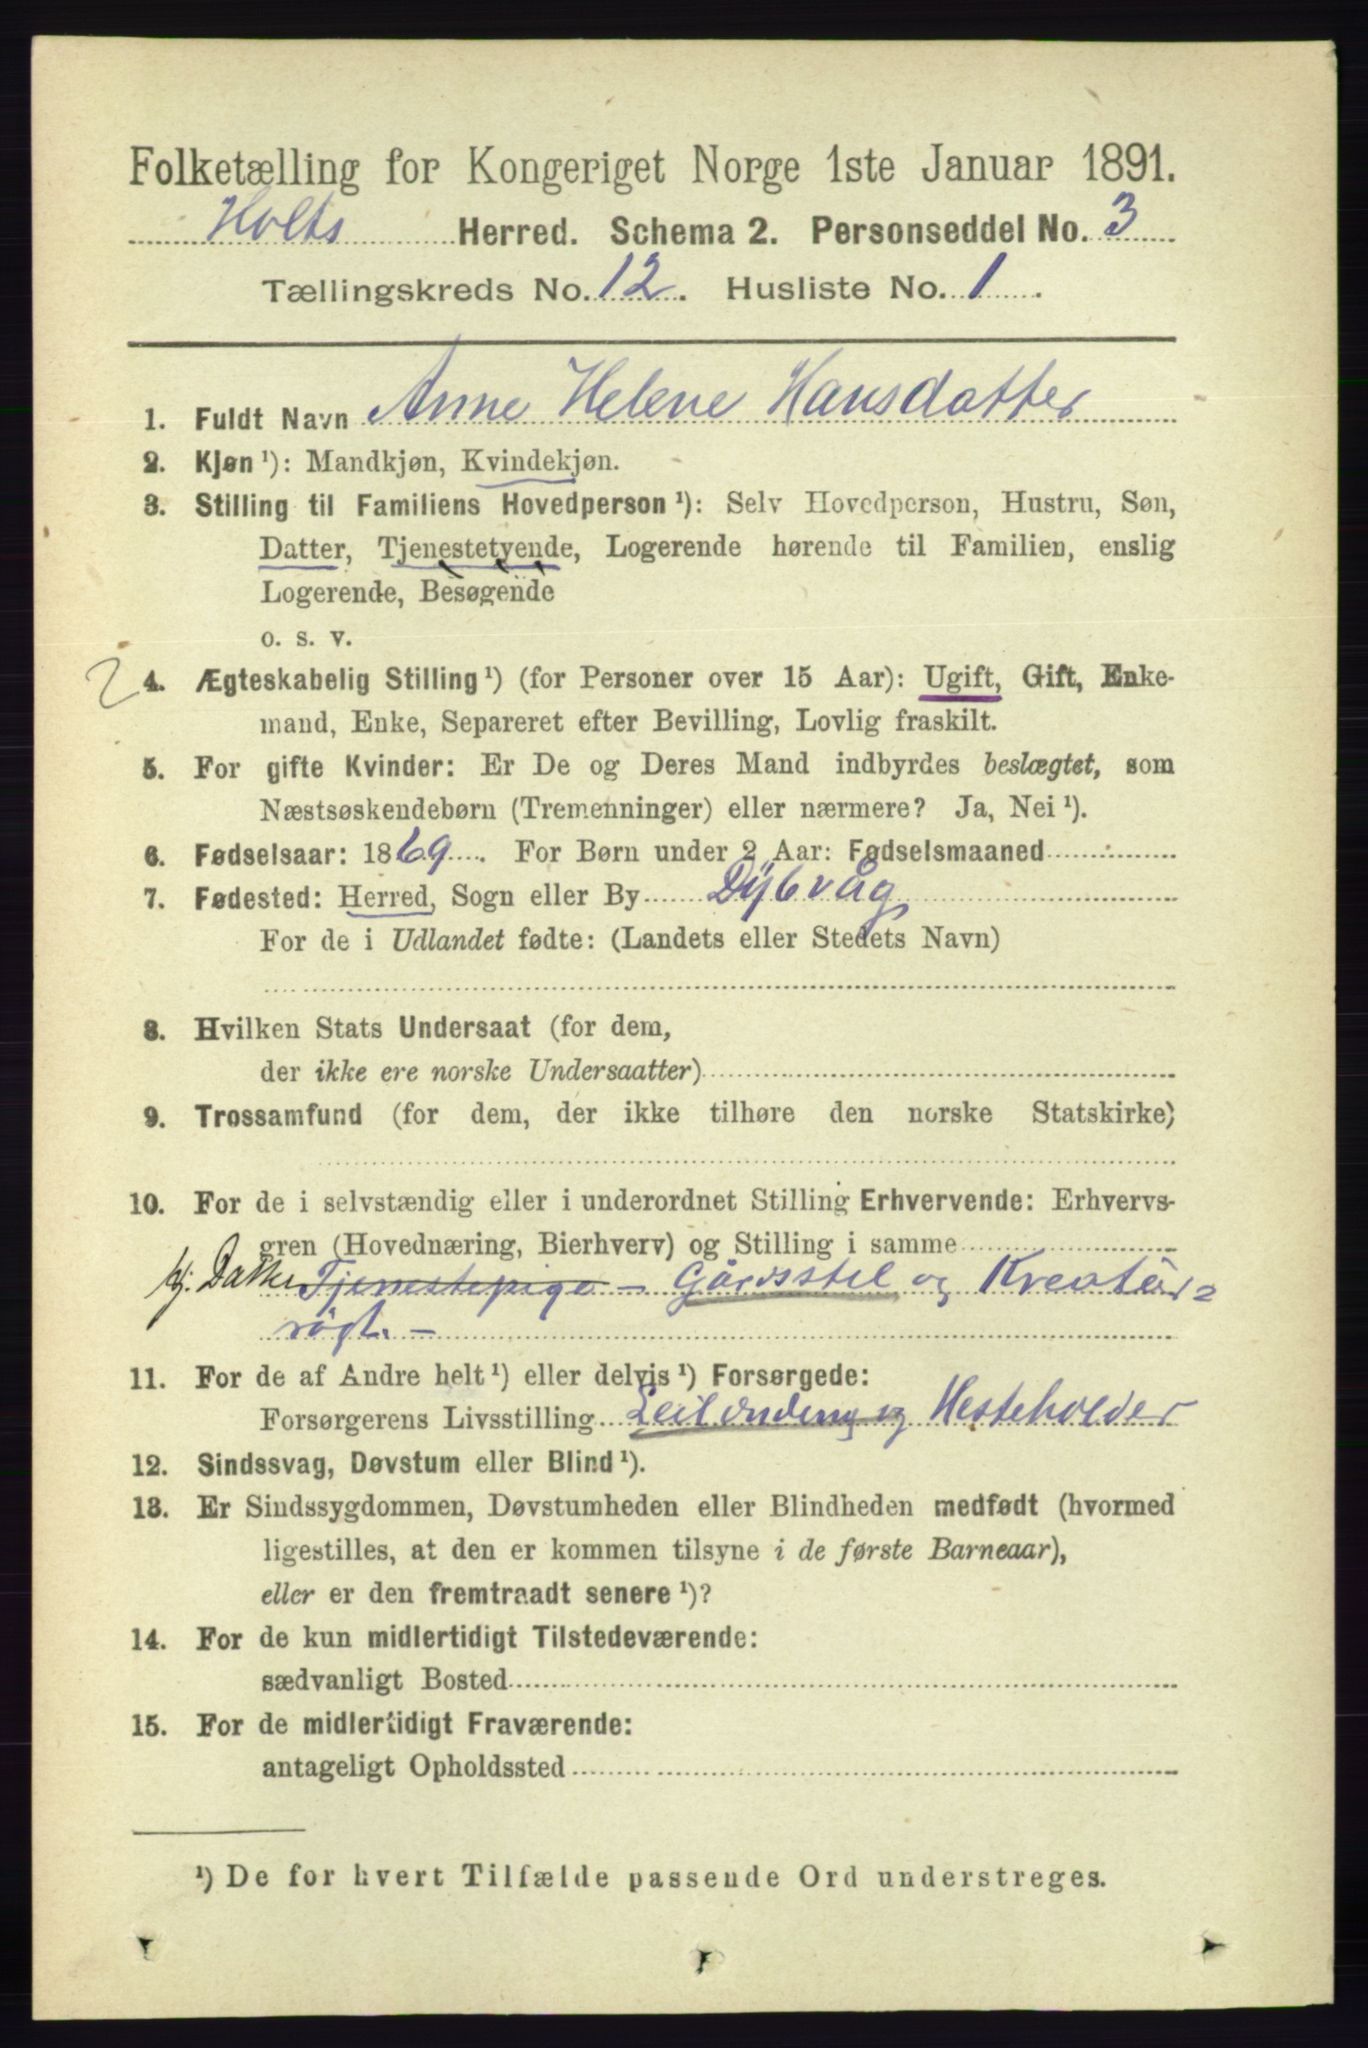 Folketælling for Kongeriget Norge 1ste Januar 1891.
Holts Herred. Schema 2. Personseddel No. 3
Tællingskreds No. 12. Husliste No. 1.
1. Fuldt Navn Anne Helene Hansdatter
2. Kjøn ¹): Mandkjøn, Kvindekjøn.
3. Stilling til Familiens Hovedperson ¹): Selv Hovedperson, Hustru, Søn,
Datter, Tjenestetyende, Logerende hørende til Familien, enslig
Logerende, Besøgende
o. s. v.
2
4. Ægteskabelig Stilling ¹) (for Personer over 15 Aar): Ugift, Gift, Enke-
mand, Enke, Separeret efter Bevilling, Lovlig fraskilt.
5. For gifte Kvinder: Er De og Deres Mand indbyrdes beslægtet, som
Næstsøskendebørn (Tremenninger) eller nærmere? Ja, Nei ¹).
6. Fødselsaar: 1869. For Børn under 2 Aar: Fødselsmaaned
7. Fødested: Herred, Sogn eller By Dybvåg
For de i Udlandet fødte: (Landets eller Stedets Navn)
8. Hvilken Stats Undersaat (for dem,
der ikke ere norske Undersaatter)
9. Trossamfund (for dem, der ikke tilhøre den norske Statskirke)
10. For de i selvstændig eller i underordnet Stilling Erhvervende: Erhvervs-
gren (Hovednæring, Bierhverv) og Stilling i samme
hj. Datter Tjenestepige - Gårdsstel og Kreatür-
røgt. -
11. For de af Andre helt ¹) eller delvis ¹) Forsørgede:
Forsørgerens Livsstilling Leilænding og Hesteholder
12. Sindssvag, Døvstum eller Blind ¹).
13. Er Sindssygdommen, Døvstumheden eller Blindheden medfødt (hvormed
ligestilles, at den er kommen tilsyne i de første Barneaar),
eller er den fremtraadt senere ¹)?
14. For de kun midlertidigt Tilstedeværende:
sædvanligt Bosted
15. For de midlertidigt Fraværende:
antageligt Opholdssted
¹) De for hvert Tilfælde passende Ord understreges.